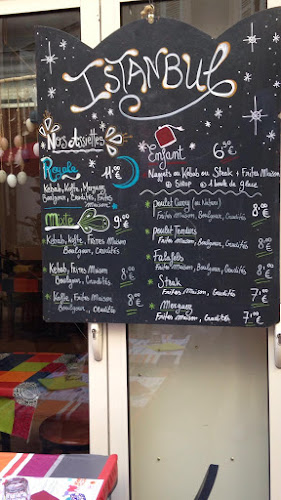 ISTANBUL
Nos Assiettes
Royale 11.00
Kebab, Kofte, Merguez
Boulgour, Crudités, Frites
Maison
Mixte 9.00
Kebab, Kofte, Frites Maison
Boulgour, Crudités
Kebab, Frites Maison 8.00
Boulgour, Crudités
Kofte, Frites Maison 8.00
Boulgour, Crudités
Enfant 6.50
Nuggets ou Kebab ou Steak + Frites Maison
Sirop
Poulet Curry
Frites Maison, Boulgour, Crudités 8.00
Poulet Tandoori
Frites Maison, Boulgour, Crudités 8.00
Falafels
Frites Maison, Boulgour, Crudités 8.00
Steak
Frites Maison, Crudités 7.00
Merguez
Frites Maison, Crudités 7.00